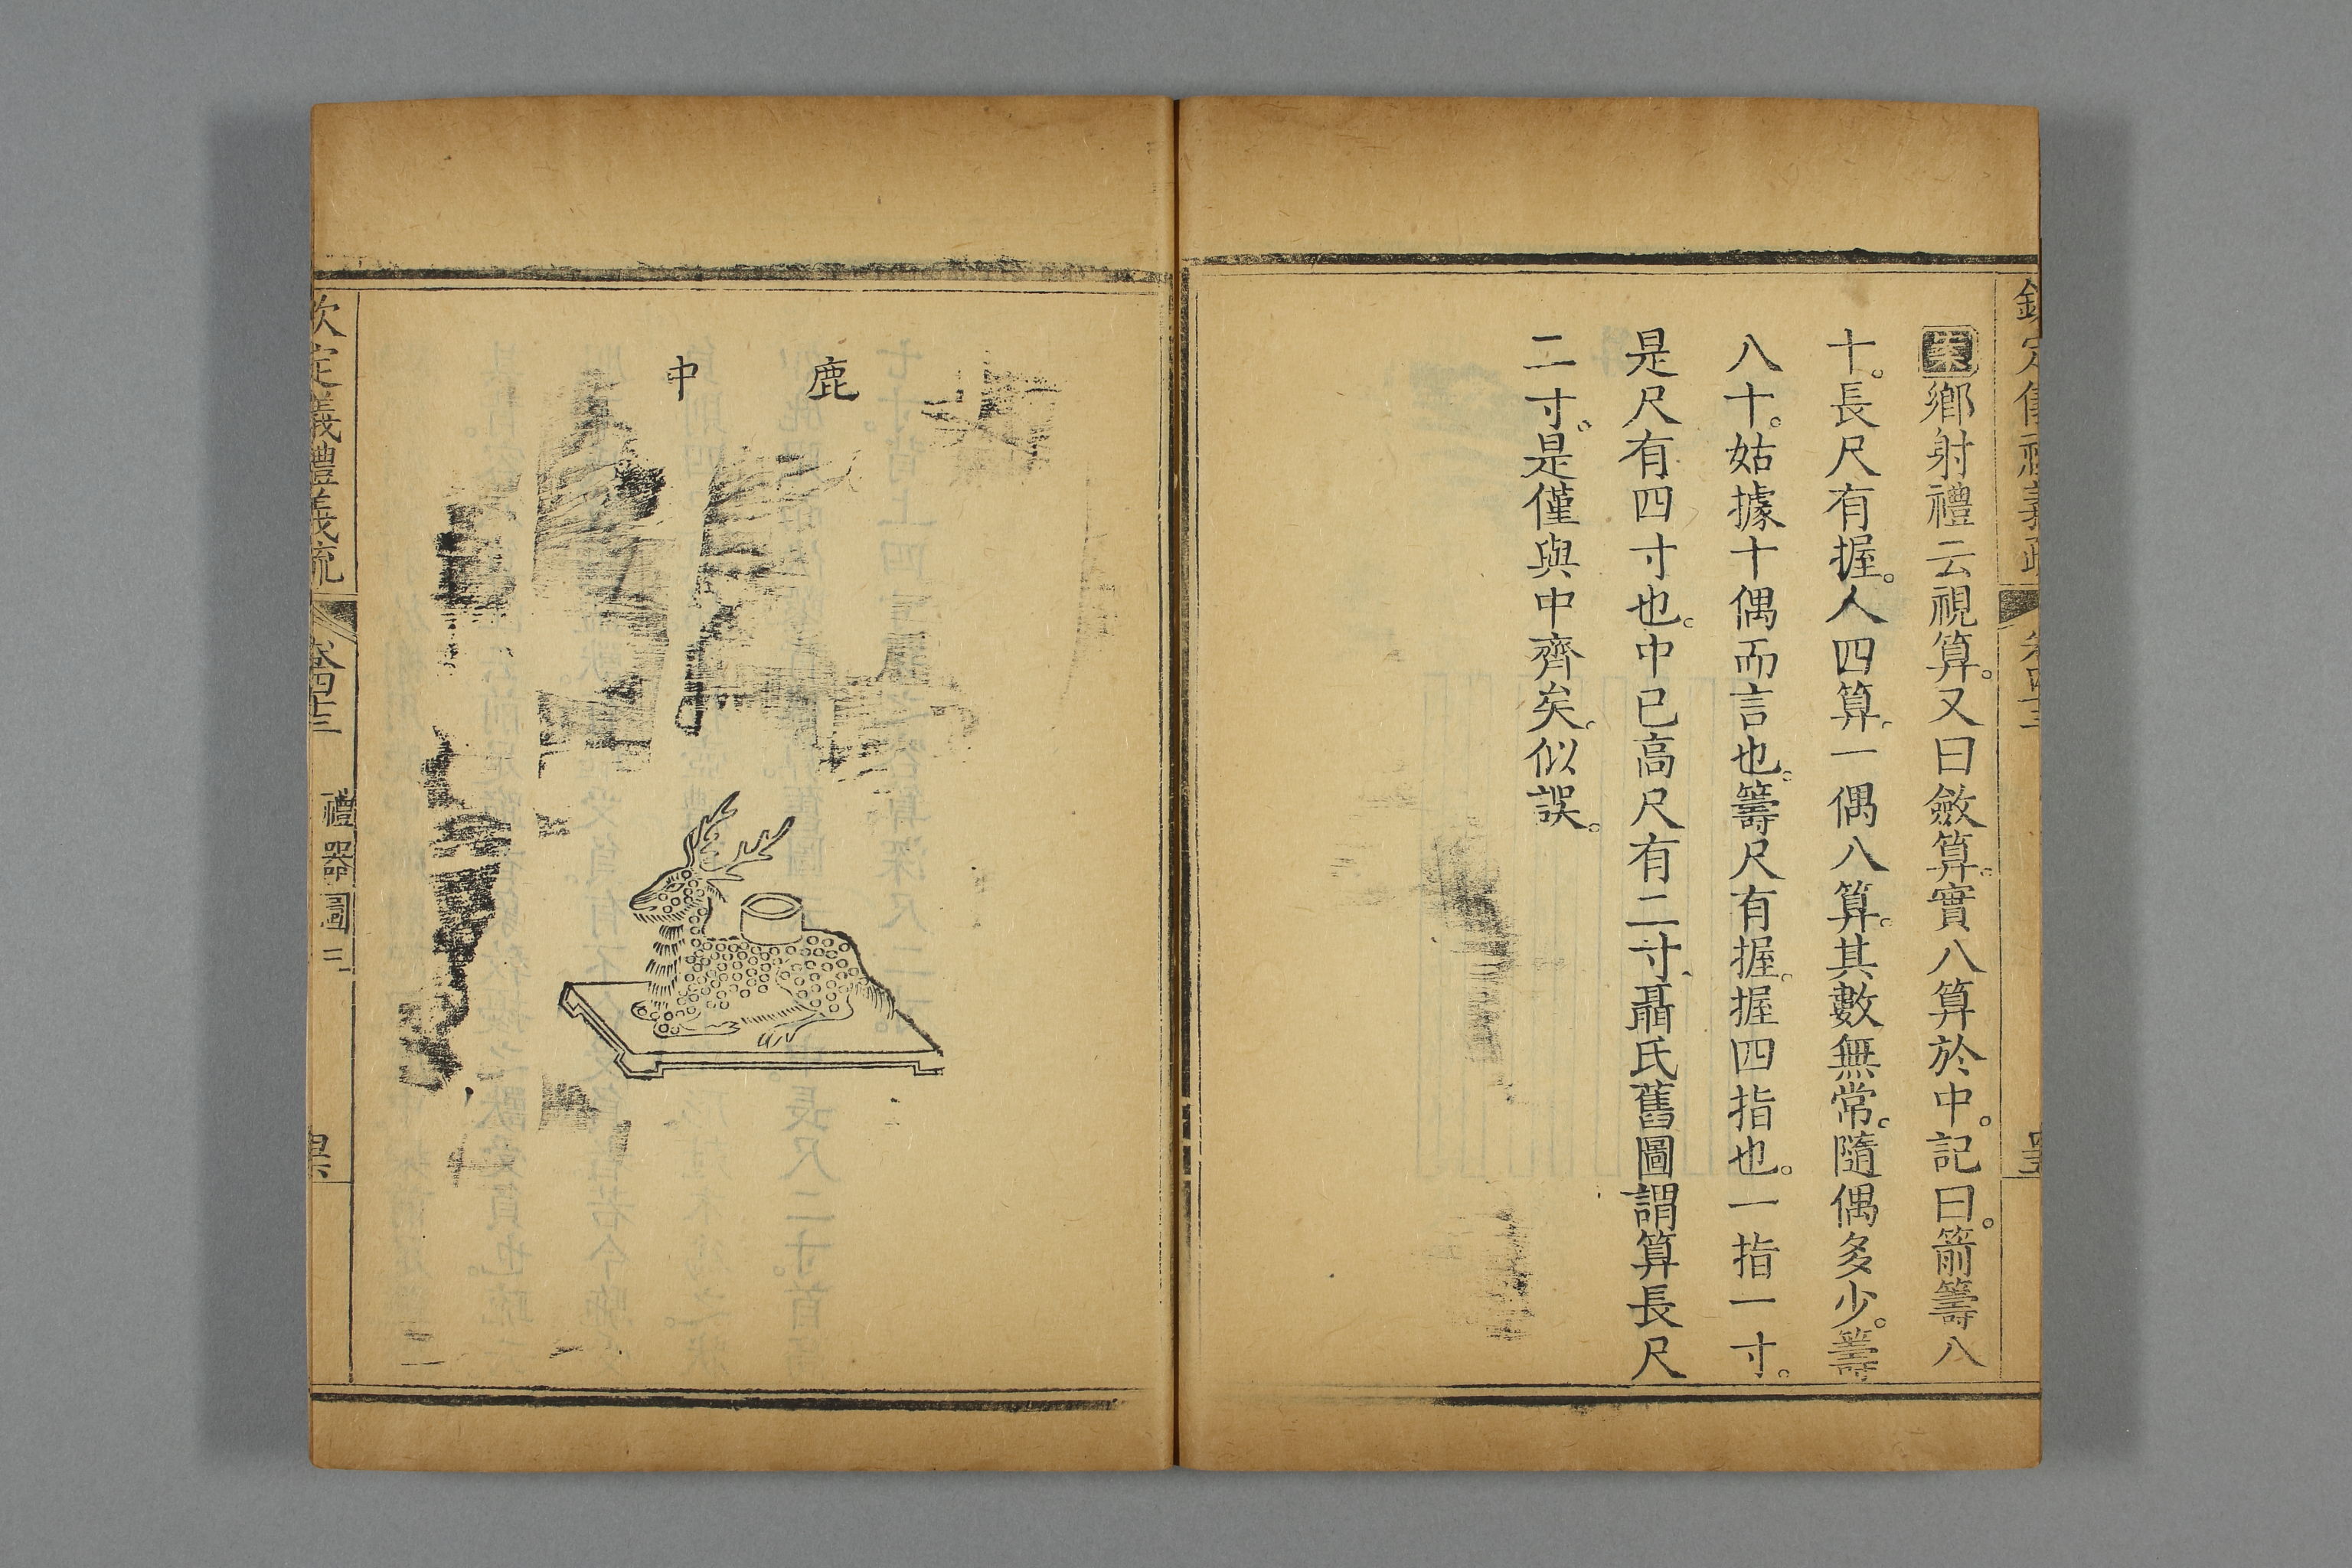 案鄉射禮云視算。又曰斂算。實八算於中。記曰。箭籌八
十。長尺有握。人四算。一偶八算。其數無常。隨偶多少。籌
八十。姑據十偶而言也。籌尺有握。握四指也。一指一寸。
是尺有四寸也。中已高尺有二寸、聶氏舊圖謂算長尺
二寸。是僅與中齊矣。似誤。
鹿
中
欽定義禮義疏
卷四十三
禮器圖二